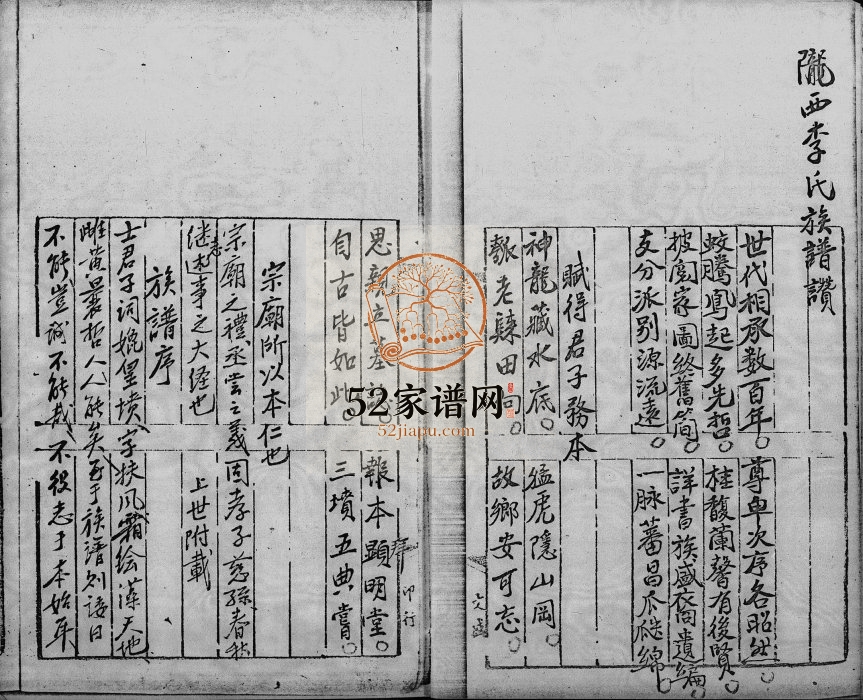 隴西李氏族譜讚
世代相承数百年。尊卑次序各昭然。
蛟騰鳳起多先哲。桂馥蘭馨有後賢。
披閲家圖終舊簡。詳書族盛啓遺編。
支分派别源流遠。一脉蕃昌瓜瓞綿。
賦得君子務本
神龍藏水底。猛虎隱山岡。
田向。故鄉安可志。
思親立墓 報本顕明堂。
自古皆如此。三墳五典嘗。
宗廟所以本仁也
宗廟之禮丞嘗之義固孝子慈孫春秋
继志述事之大经也 上世附載
族譜序
士君子词 墳 字扶风霜绘藻天地
雌黄曩哲人人能矣至于族譜则诿曰
不能豈诚不能哉不役志于本始耳
印行
52家谱网
52jiapu.com